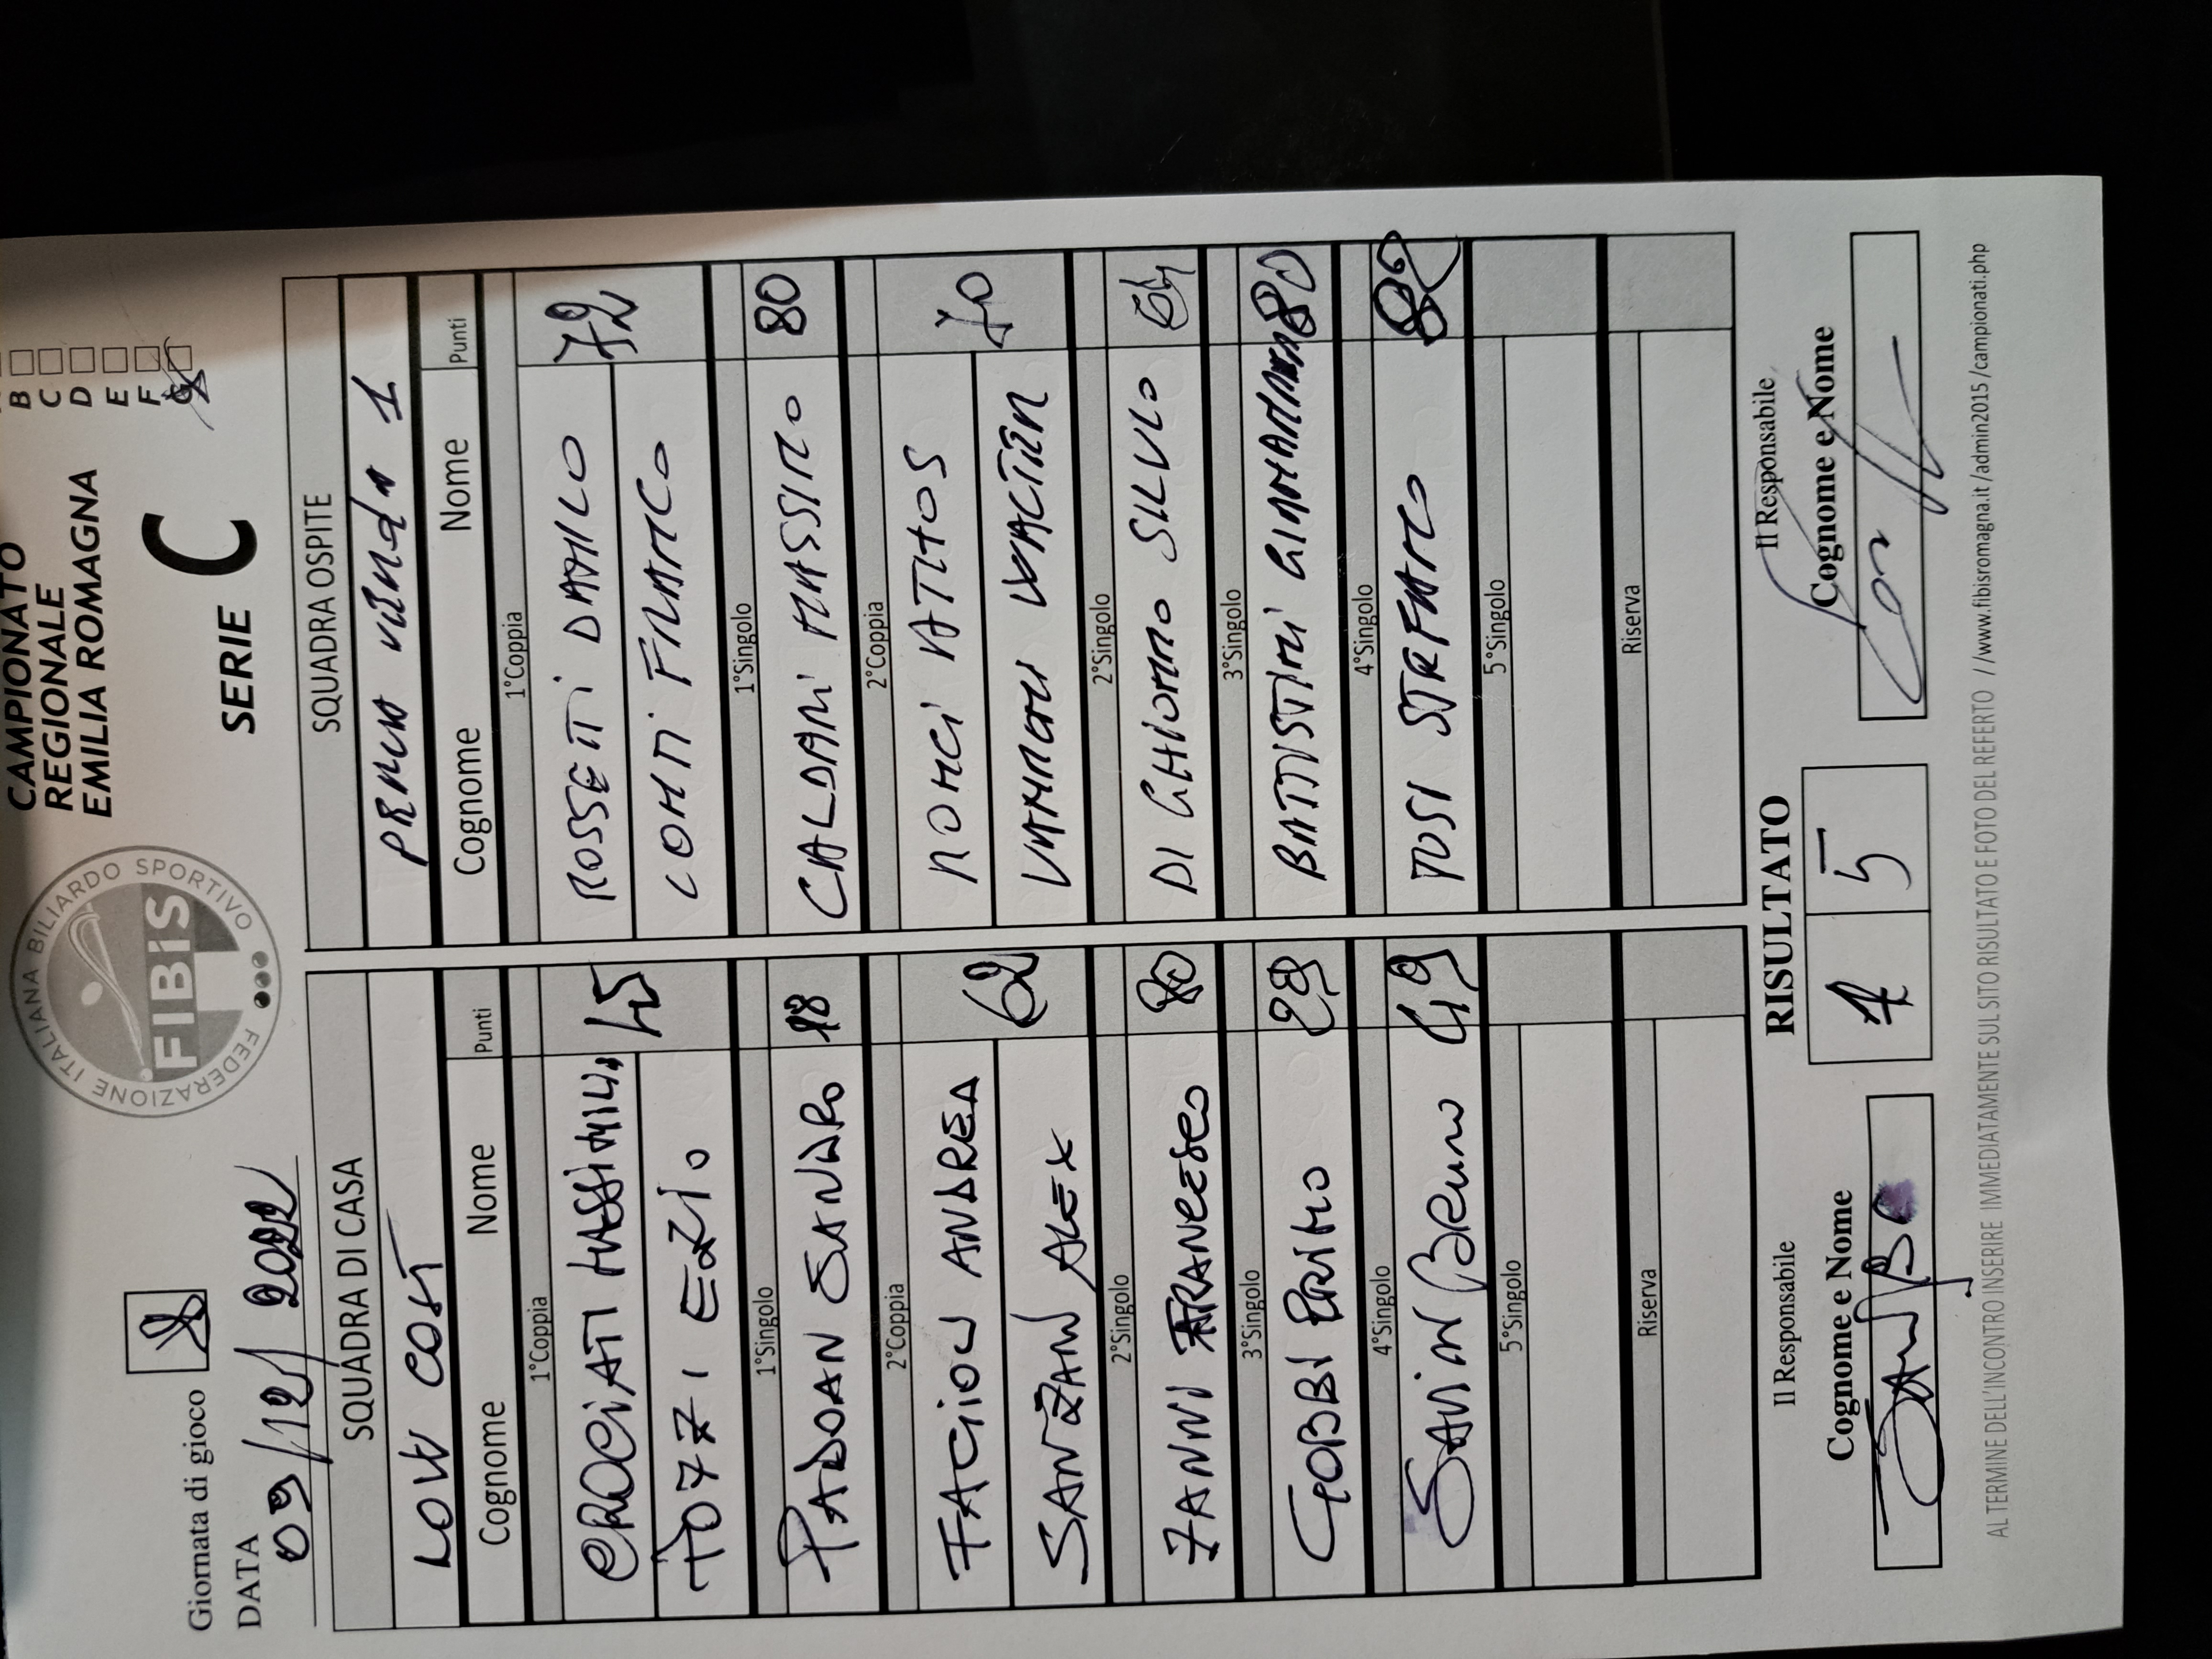 Giornata di gioco 8
DATA 09/12/2022
FEDERAZIONE ITALIANA BILIARDO SPORTIVO
FIBiS
CAMPIONATO
REGIONALE
EMILIA ROMAGNA
SERIE C
B
C
D
E
F
G
SQUADRA DI CASA SQUADRA OSPITE
LOW COST 1
Cognome Nome Punti Cognome Nome Punti
1°Coppia 1°Coppia
CROCIATI 45 ROSSETTI DANILO 72
TOZZI EZIO CONTI FRANCO
1°Singolo 1°Singolo
PADOAN SANDRO 18 CALDANI MASSIMO 80
2°Coppia 2°Coppia
FAGIOLI ANDREA 62 ATHOS 70
SANZANI ALEX
2°Singolo 2°Singolo
ZANNI FRANCESCO 80 DI SILVIO 64
3°Singolo 3°Singolo
GOBBI PRIMO 29 BATTISTINI 80
4°Singolo 4°Singolo
SAVINI Bruno 49 TOSI STEFANO
5°Singolo 5°Singolo
Riserva Riserva
Il Responsabile RISULTATO Il Responsabile
Cognome e Nome 1 5 Cognome e Nome
AL TERMINE DELL'INCONTRO INSERIRE IMMEDIATAMENTE SUL SITO RISULTATO E FOTO DEL REFERTO //www.fibisromagna.it/admin2015/campionati.php